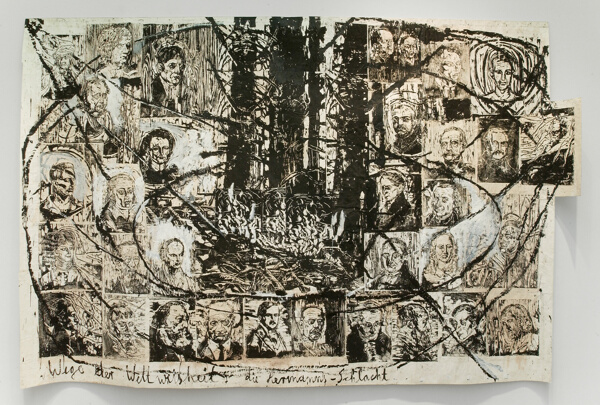 Wege der Weltweisheit: die Hermanns-Schlacht